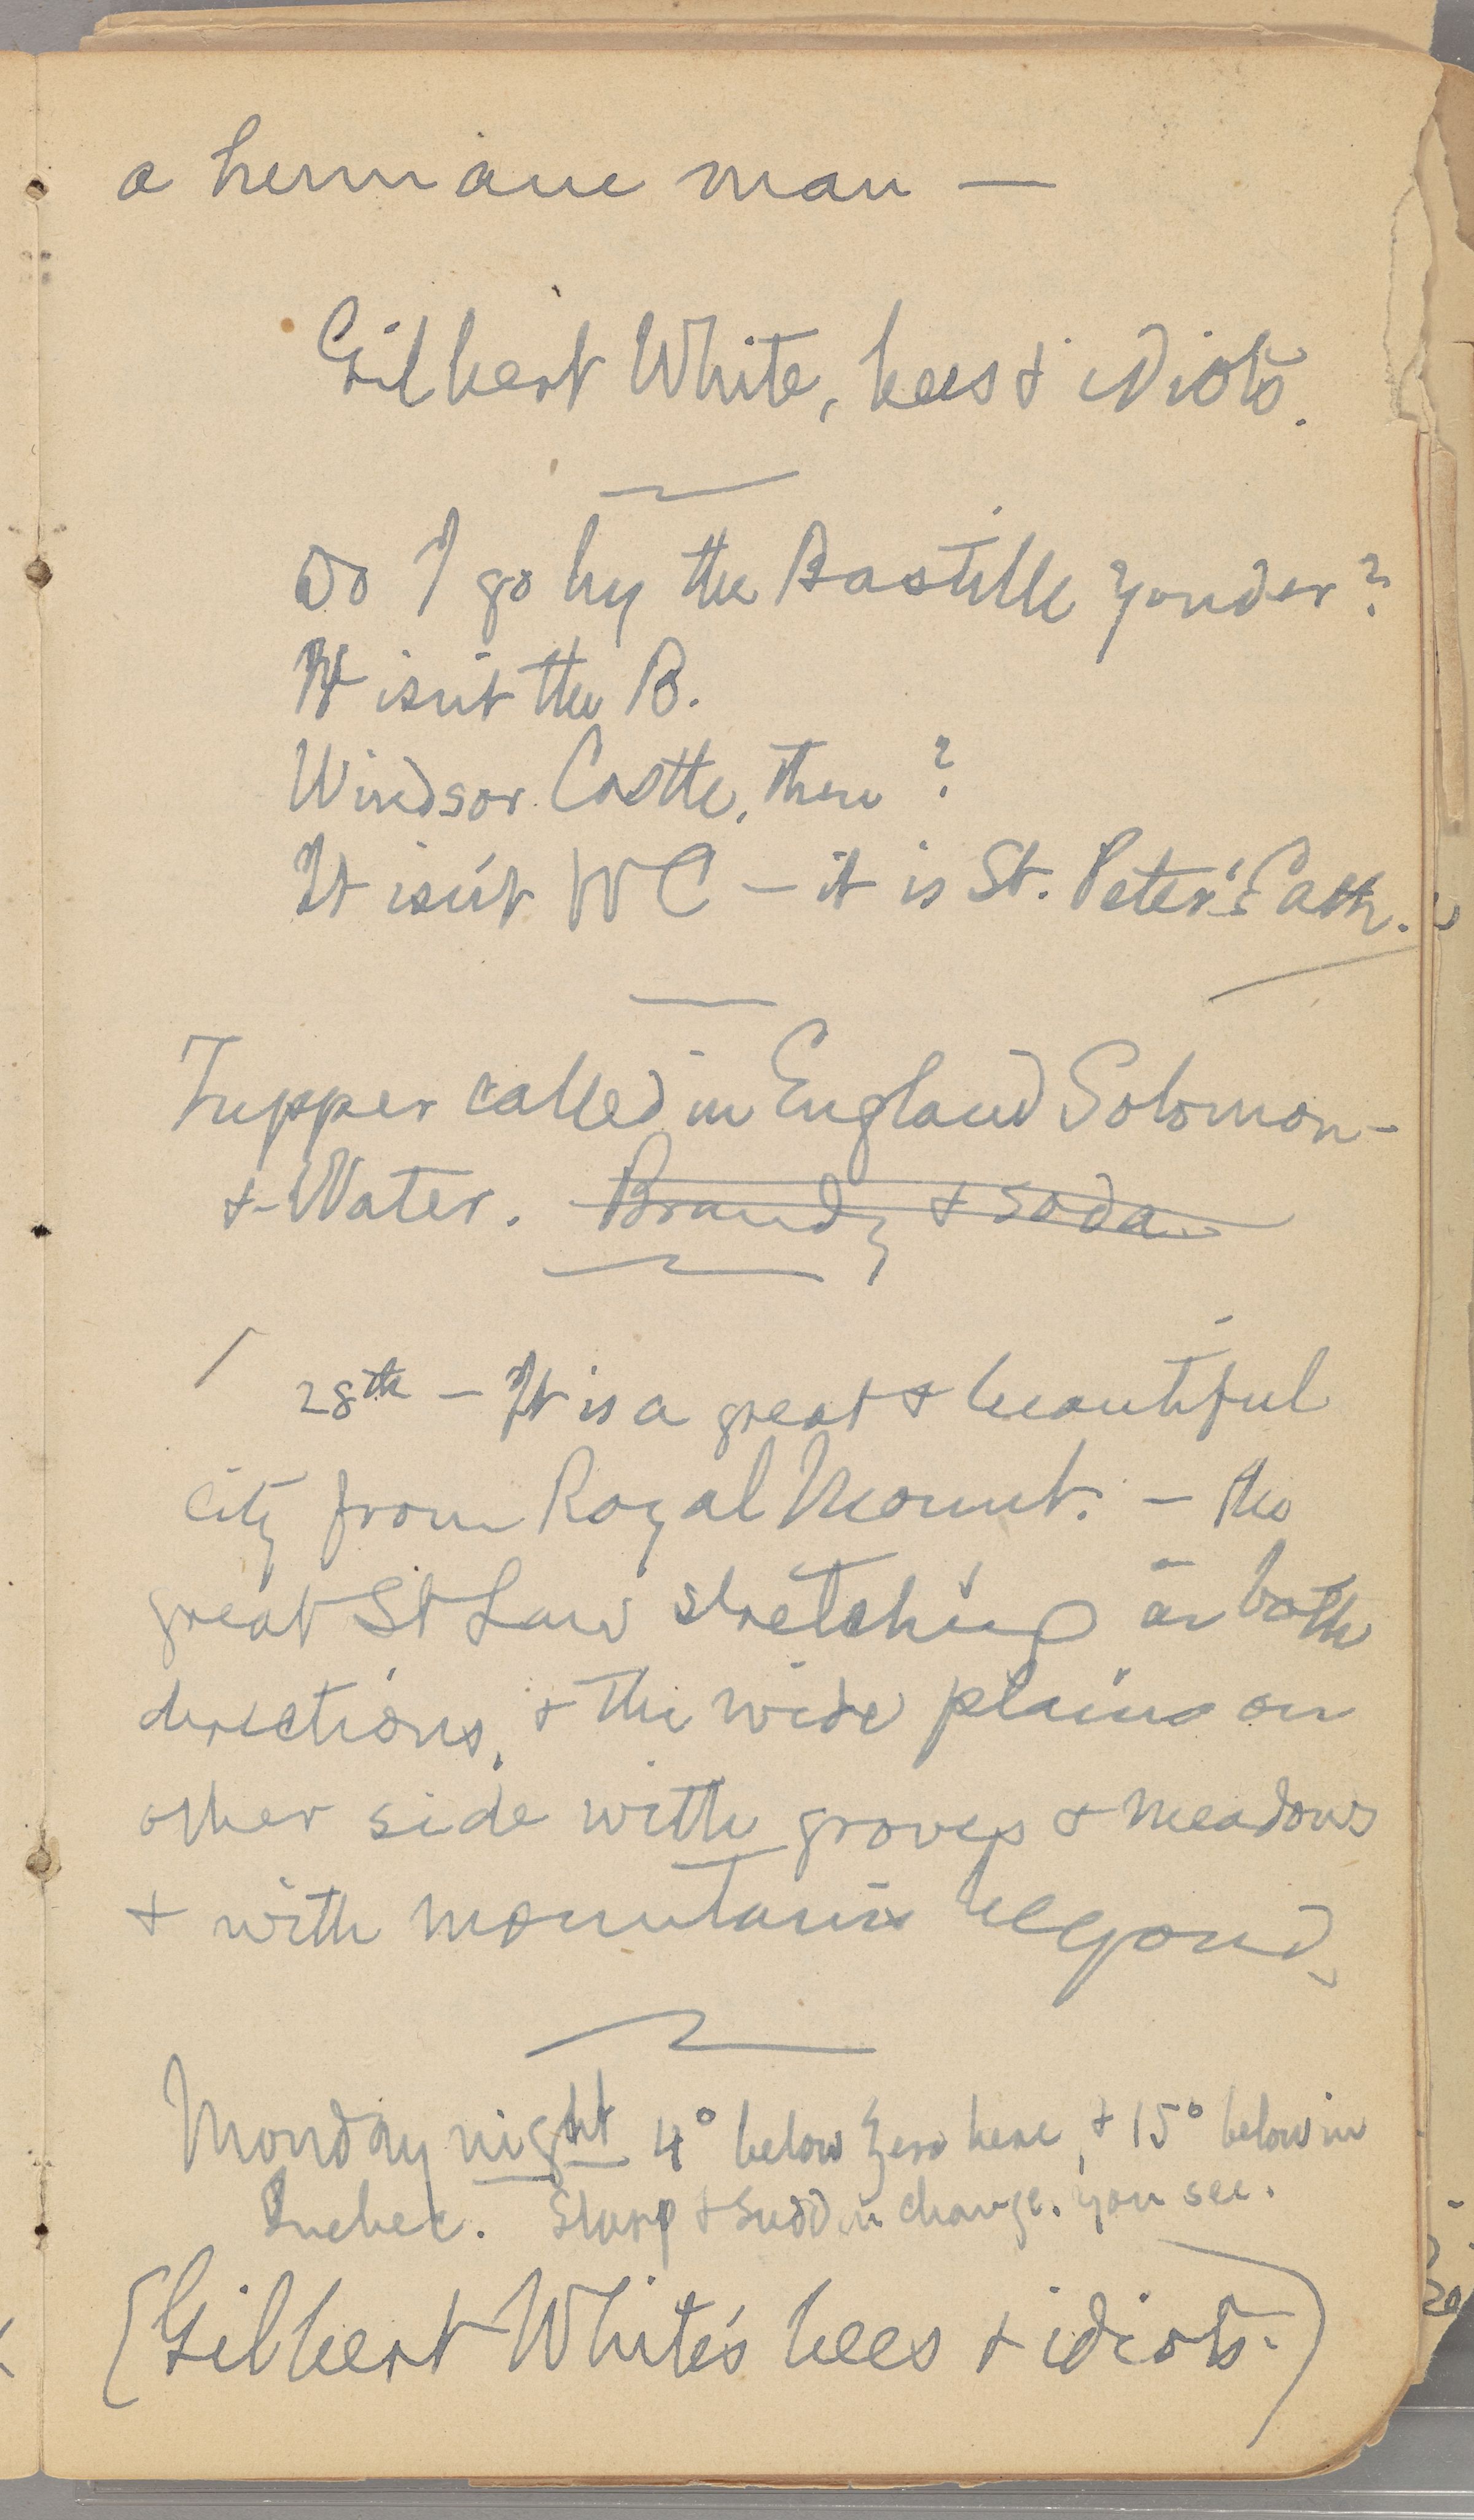 a humane man —
Gilbert White, bees & idiots.
Do I go by the Bastille yonder?
It isn't the B.
Windsor Castle, then?
It isn't W C — it is St. Peter's Cath.
Tupper called in England Solomon-
&-Water. Brandy & soda
28th — It is a great & beautiful
city from Royal Mount. — the
great St Law stretching in both
directions, & the wide plains on
other side with groves & meadows
& with mountains beyond.
Monday night 4° below zero here, & 15° below in
Quebec. Sharp & sudden change, you see.
(Gilbert White's bees & idiots.)